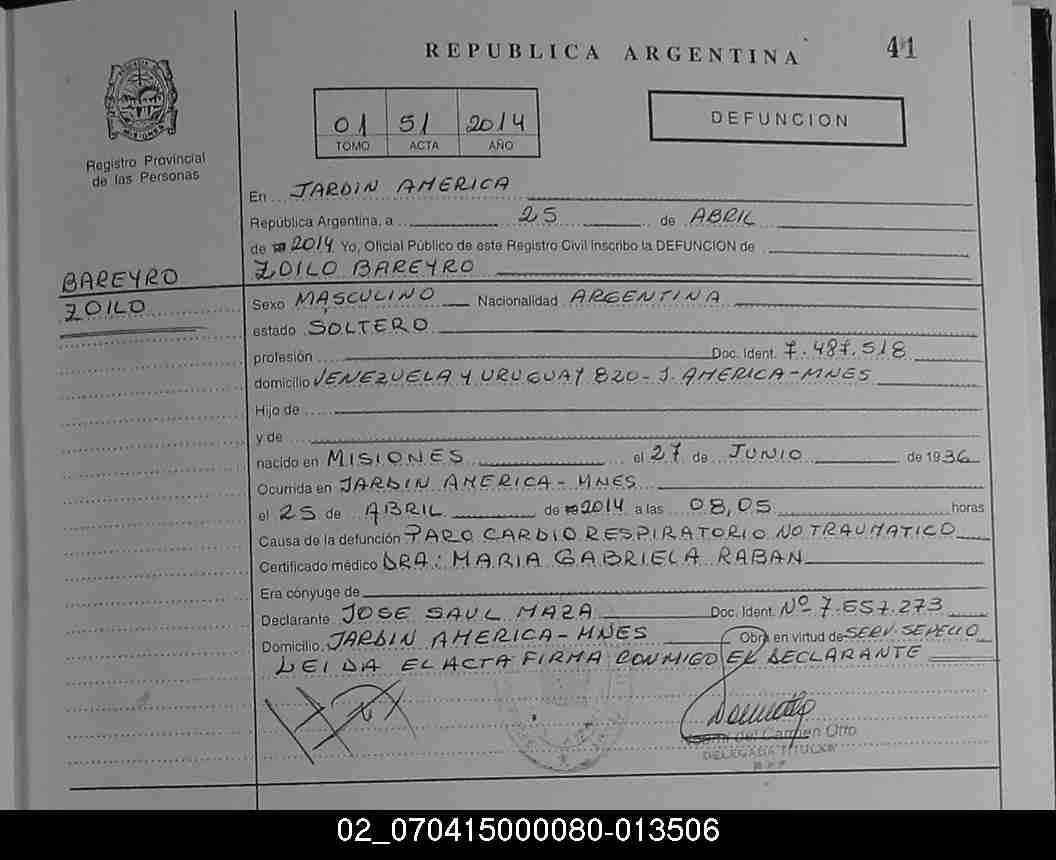 REPUBLICA ARGENTINA
41
01 51 2014
TOMO ACTA AÑO
DEFUNCION
MISIONES
Registro Provincial
de las Personas
En JARDIN AMERICA
República Argentina, a 25 de ABRIL
de 2014 Yo, Oficial Público de este Registro Civil Inscribo la DEFUNCION de
ZOILO BAREYRO
BAREYRO
ZOILO
Sexo MASCULINO Nacionalidad ARGENTINA
estado SOLTERO
profesión Doc. Ident. 7.487.518
domicilio VENEZUELA Y URUGUAY 820-J. AMERICA-MNES
Hijo de
y de
nacido en MISIONES el 27 de JUNIO de 1936
Ocurrida en JARDIN AMERICA-MNES
el 25 de ABRIL de 2014 a las 08,05 horas
Causa de la defunción PARO CARDIO RESPIRATORIO NO TRAUMATICO
Certificado médico DRA: MARIA GABRIELA RABAN
Era cónyuge de
Declarante JOSE SAUL MAZA Doc. Ident. Nº 7.657.273
Domicilio JARDIN AMERICA-MNES Obra en virtud de SERV. SEPELIO
LEIDA EL ACTA FIRMA CONMIGO EL DECLARANTE
del Carmen Otto
DELEGADA TITULAR
02_070415000080-013506